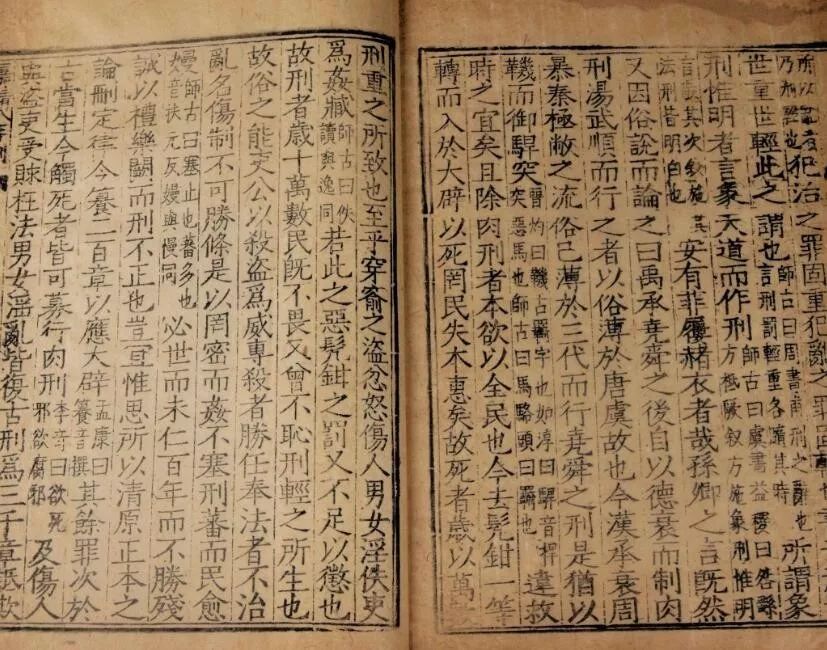 犯治之罪固重犯亂之罪固
世重世輕此之謂也師古曰周書甫刑之辭也言刑罰輕重各隨其時所謂象
刑惟明者言象天道而作刑師古曰虞書益稷曰咎繇方祗厥叙方施象刑惟明
言敬其次叙施其法刑皆明白也安有菲屨赭衣者哉孫卿之言旣然
又因俗說而論之曰禹承堯舜之後自以德衰而制肉
刑湯武順而行之者以俗薄於唐虞故也今漢承衰周
暴秦極敝之流俗已薄於三代而行堯舜之刑是猶以
鞿而御駻突晉灼曰鞿古羈字也如淳曰駻音捍突惡馬也師古曰馬絡頭曰羈也違救
時之宜矣且除肉刑者本欲以全民也今去髡鉗一等
轉而入於大辟以死罔民失本惠矣故死者歲以萬數
刑重之所致也至乎穿窬之盜忿怒傷人男女淫佚吏
爲姦臧師古曰佚讀與逸同若此之惡髡鉗之罰又不足以懲也
故刑者歲十萬數民旣不畏又曾不恥刑輕之所生也
故俗之能吏公以殺盜爲威專殺者勝任奉法者不治
亂名傷制不可勝條是以罔密而姦不塞刑蕃而民愈
嫚師古曰塞止也蕃多也音扶元反嫚與慢同必世而未仁百年而不勝殘
誠以禮樂闕而刑不正也豈宜惟思所以清原正本之
論刪定律今籑二百章以應大辟孟康曰籑音撰其餘罪次於
古當生令觸死者皆可募行肉刑李奇曰欲死邪欲腐邪及傷人
與盜吏受賕枉法男女淫亂皆復古刑爲三千章詆欺